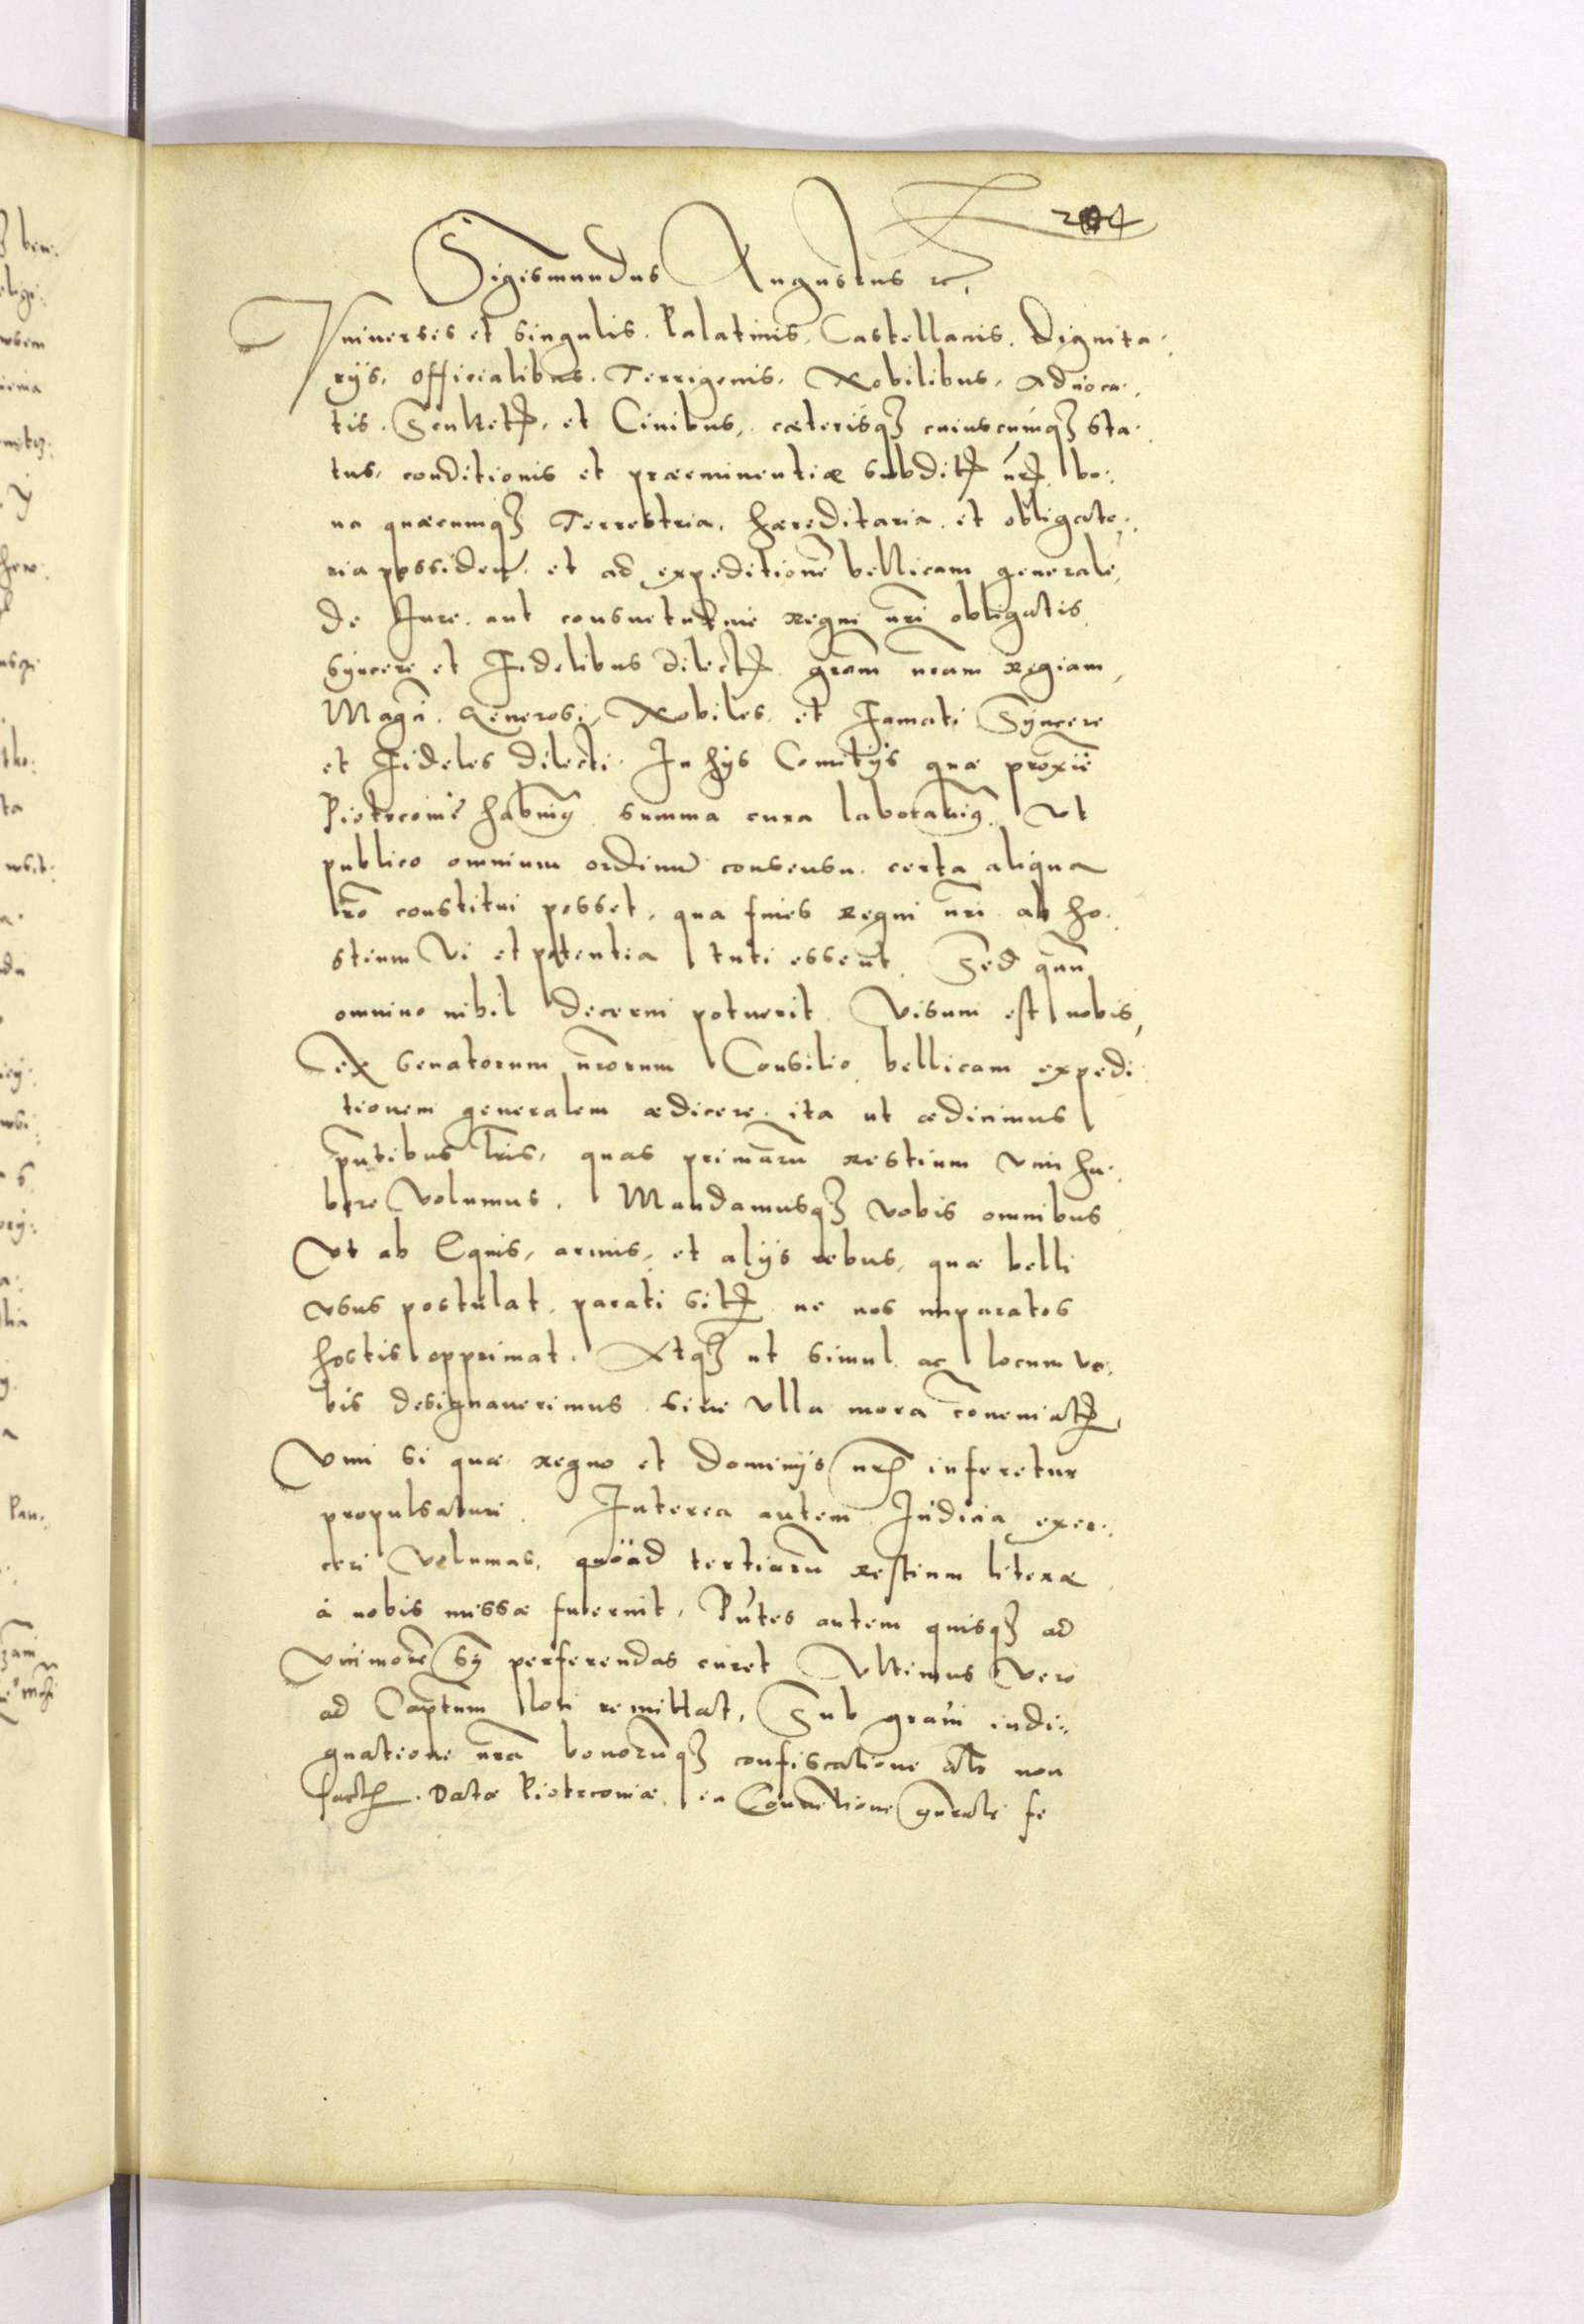 204
Sigismundus Augustus etc.
Vniuersis et singulis. Palatinis, Castellanis, Dignita:
rijs, Officialibus, Terrigenis, Nobilibus, Aduoca:
tis, Scultet(is), et Ciuibus, cæterisq(ue) cuiuscumq(ue) sta:
tus, conditionis et præeminentiæ subdit(is) nr(is), bo:
na quæcumq(ue) Terrestria, hæreditaria et obligato:
ria possiden(tibus) et ad expeditione(m) bellicam generale(m),
de Iure aut consuetudine regni nr(ost)ri obligatis,
syncere et Fidelibus dilect(is) gra(tia)m n(ost)ram regiam,
Mag(nifi)ci, Generosi, Nobiles, et Famati Syncere
et Fideles dilecti. In hijs Comitijs quæ proxi(m)e
Piotrcoui(æ) habuim(us) summa cura laborauim(us), Vt
publico omnium ordinu(m) consensu certa aliqua
r(ati)o constitui posset, qua fines Regni n(ost)ri ab ho:
stium vi et potentia tuti essent. Sed quu(m)
omnino nihil decerni potuerit, Visum est nobis,
ex senatorum n(ost)rorum Consilio, bellicam expedi
tionem generalem ædicere, ita ut ædicimus
p(rese)ntibus l(itte)ris, quas primaru(m) restium vim ha:
bere volumus. Mandamusq(ue) vobis omnibus
Vt ab Equis, armis, et alijs rebus, quæ belli
vsus postulat, parati sit(is), ne nos imparatos
hostis opprimat. Atq(ue) ut simul ac locum vo:
bis designauerimus sine vlla mora co(n)ueniat(is),
Vim si quæ regno et Dominijs nr(is) inferetur
propulsaturi. Interea autem Iudicia exer:
ceri volumus, quoad tertiaru(m) restium literæ
à nobis missæ fuerint, P(rese)ntes autem quisq(ue) ad
viciniore(m) su(um) perferendas curet, Vltimus vero
ad Cap(i)t(ane)um loci remittat, Sub graui indi:
gnatione n(ost)ra bonoru(m)q(ue) confiscatione al(ite)r non
factu(ri). Datæ Piotrcouiæ, in Conuentione g(e)n(e)rali fe